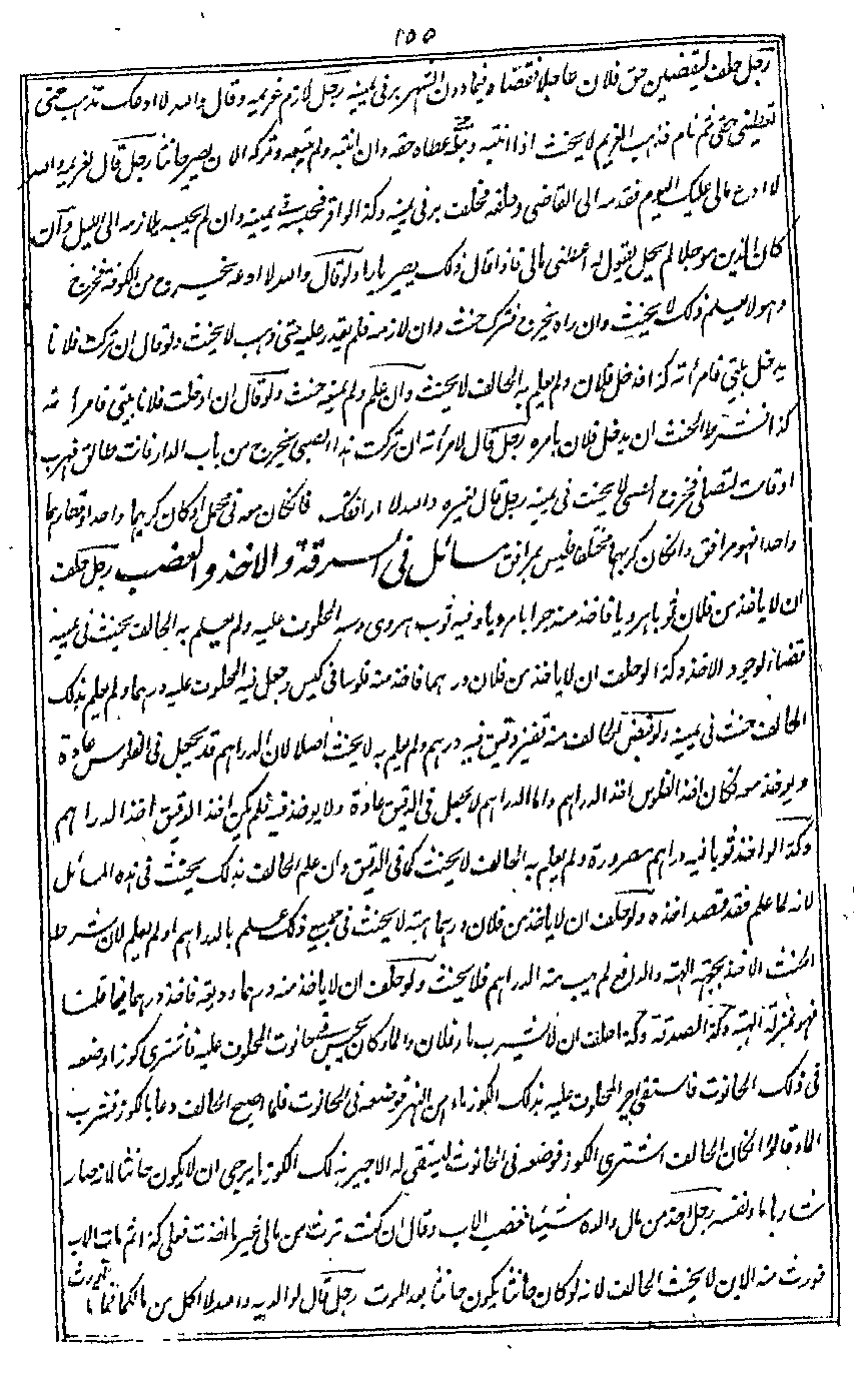 ١٥٥
رجل حلف ليقضين حق فلان عاجلا فقضاه فيما دون الشهر بر فى يمينه رجل لازم غريمه وقال والله لا ادعك تذهب حتى
تعطينى حقى ثم نام فذهب الغريم لا يحنث اذا انتبه اعطاه حقه وان انتبه ولم يتبعه وتركه الان يصير حانثا رجل قال لغريمه والله
لا ادع مالى عليك اليوم فقدمه الى القاضى وحلفه فحلف بر فى يمينه وكذا لو اقر فحبسه فى يمينه وان لم يحبسه يلازمه الى الليل وان
كان الدين مؤجلا لم يحل يقول له اعطنى مالى فاذا قال ذلك يصير بارا ولو قال والله لا ادعه يخرج من الكوفة فخرج
وهو لا يعلم ذلك لا يحنث وان راه يخرج فتركه حنث وان لازمه فلم يقدر عليه حتى ذهب لا يحنث ولو قال ان تركت فلانا
يدخل بيتى فامرأته كذا فدخل فلان ولم يعلم به الحالف لا يحنث وان علم ولم يمنعه حنث ولو قال ان ادخلت فلانا بيتى فامرأته
كذا فشرط الحنث ان يدخل فلان بامره رجل قال لامرأته ان تركت هذا الصبى يخرج من باب الدار فانت طالق فهرب
او قامت لتصلى فخرج الصبى لا يحنث فى يمينه رجل قال لغيره والله لا ارافقك فان كان معه فى محمل او كان كريهما واحدا وقطارهما
واحدا فهو مرافق وان كان كريهما مختلفا فليس بمرافق مسائل فى السرقة والاخذ والغصب رجل حلف
ان لا ياخذ من فلان ثوبا هرويا فاخذ منه جرابا مرويا وفيه ثوب هروى دسه المحلوف عليه ولم يعلم به الحالف يحنث فى يمينه
قضاء لوجود الاخذ وكذا لو حلف ان لا ياخذ من فلان درهما فاخذ منه فلوسا فى كيس وجعل فيه المحلوف عليه درهما ولم يعلم بذلك
الحالف حنث فى يمينه ولو قبض الحالف منه قفيز دقيق فيه درهم ولم يعلم به لا يحنث اصلا لان الدراهم قد تجعل فى الفلوس عادة
ويوخذ معه فكان اخذ الفلوس اخذ الدراهم واما الدراهم لا تجعل فى الدقيق عادة ولا يوخذ فيه فلم يكن اخذ الدقيق اخذ الدراهم
وكذا لو اخذ ثوبا فيه دراهم مصرورة ولم يعلم به الحالف لا يحنث كما فى الدقيق وان علم الحالف بذلك يحنث فى هذه المسائل
لانه لما علم فقد قصد اخذه ولو حلف ان لا ياخذ من فلان درهما هبة لا يحنث فى جميع ذلك علم بالدراهم او لم يعلم لان شرط
الحنث الاخذ بجهة الهبة والدافع لم يهب منه الدراهم فلا يحنث ولو حلف ان لا ياخذ منه درهما وديعة فاخذ درهما فيما قلنا
فهو بمنزلة الهبة وكذا الصدقة وكذا حلف ان لا يشرب ماء فلان والحالف كان يجلس فى حانوت المحلوف عليه فاشترى كوزا وضعه
فى ذلك الحانوت فاستقى اجير المحلوف عليه بذلك الكوز ماء من النهر فوضعه فى الحانوت فلما اصبح الحالف دعا بالكوز فشرب
الماء قالوا ان كان الحالف اشترى الكوز فوضعه فى الحانوت ليستقى له الاجير بذلك الكوز يرجى ان لا يكون حانثا لانه صار
شاربا ماء نفسه رجل اخذ من مال والده شيئا فغضب الاب وقال ان كنت ترث من مالى غير ما اخذت فعلى كذا ثم مات الاب
فورث منه الابن لا يحنث الحالف لانه لو كان حانثا يكون حانثا بعد الموت رجل قال لوالديه والله لا اكل من مالكما